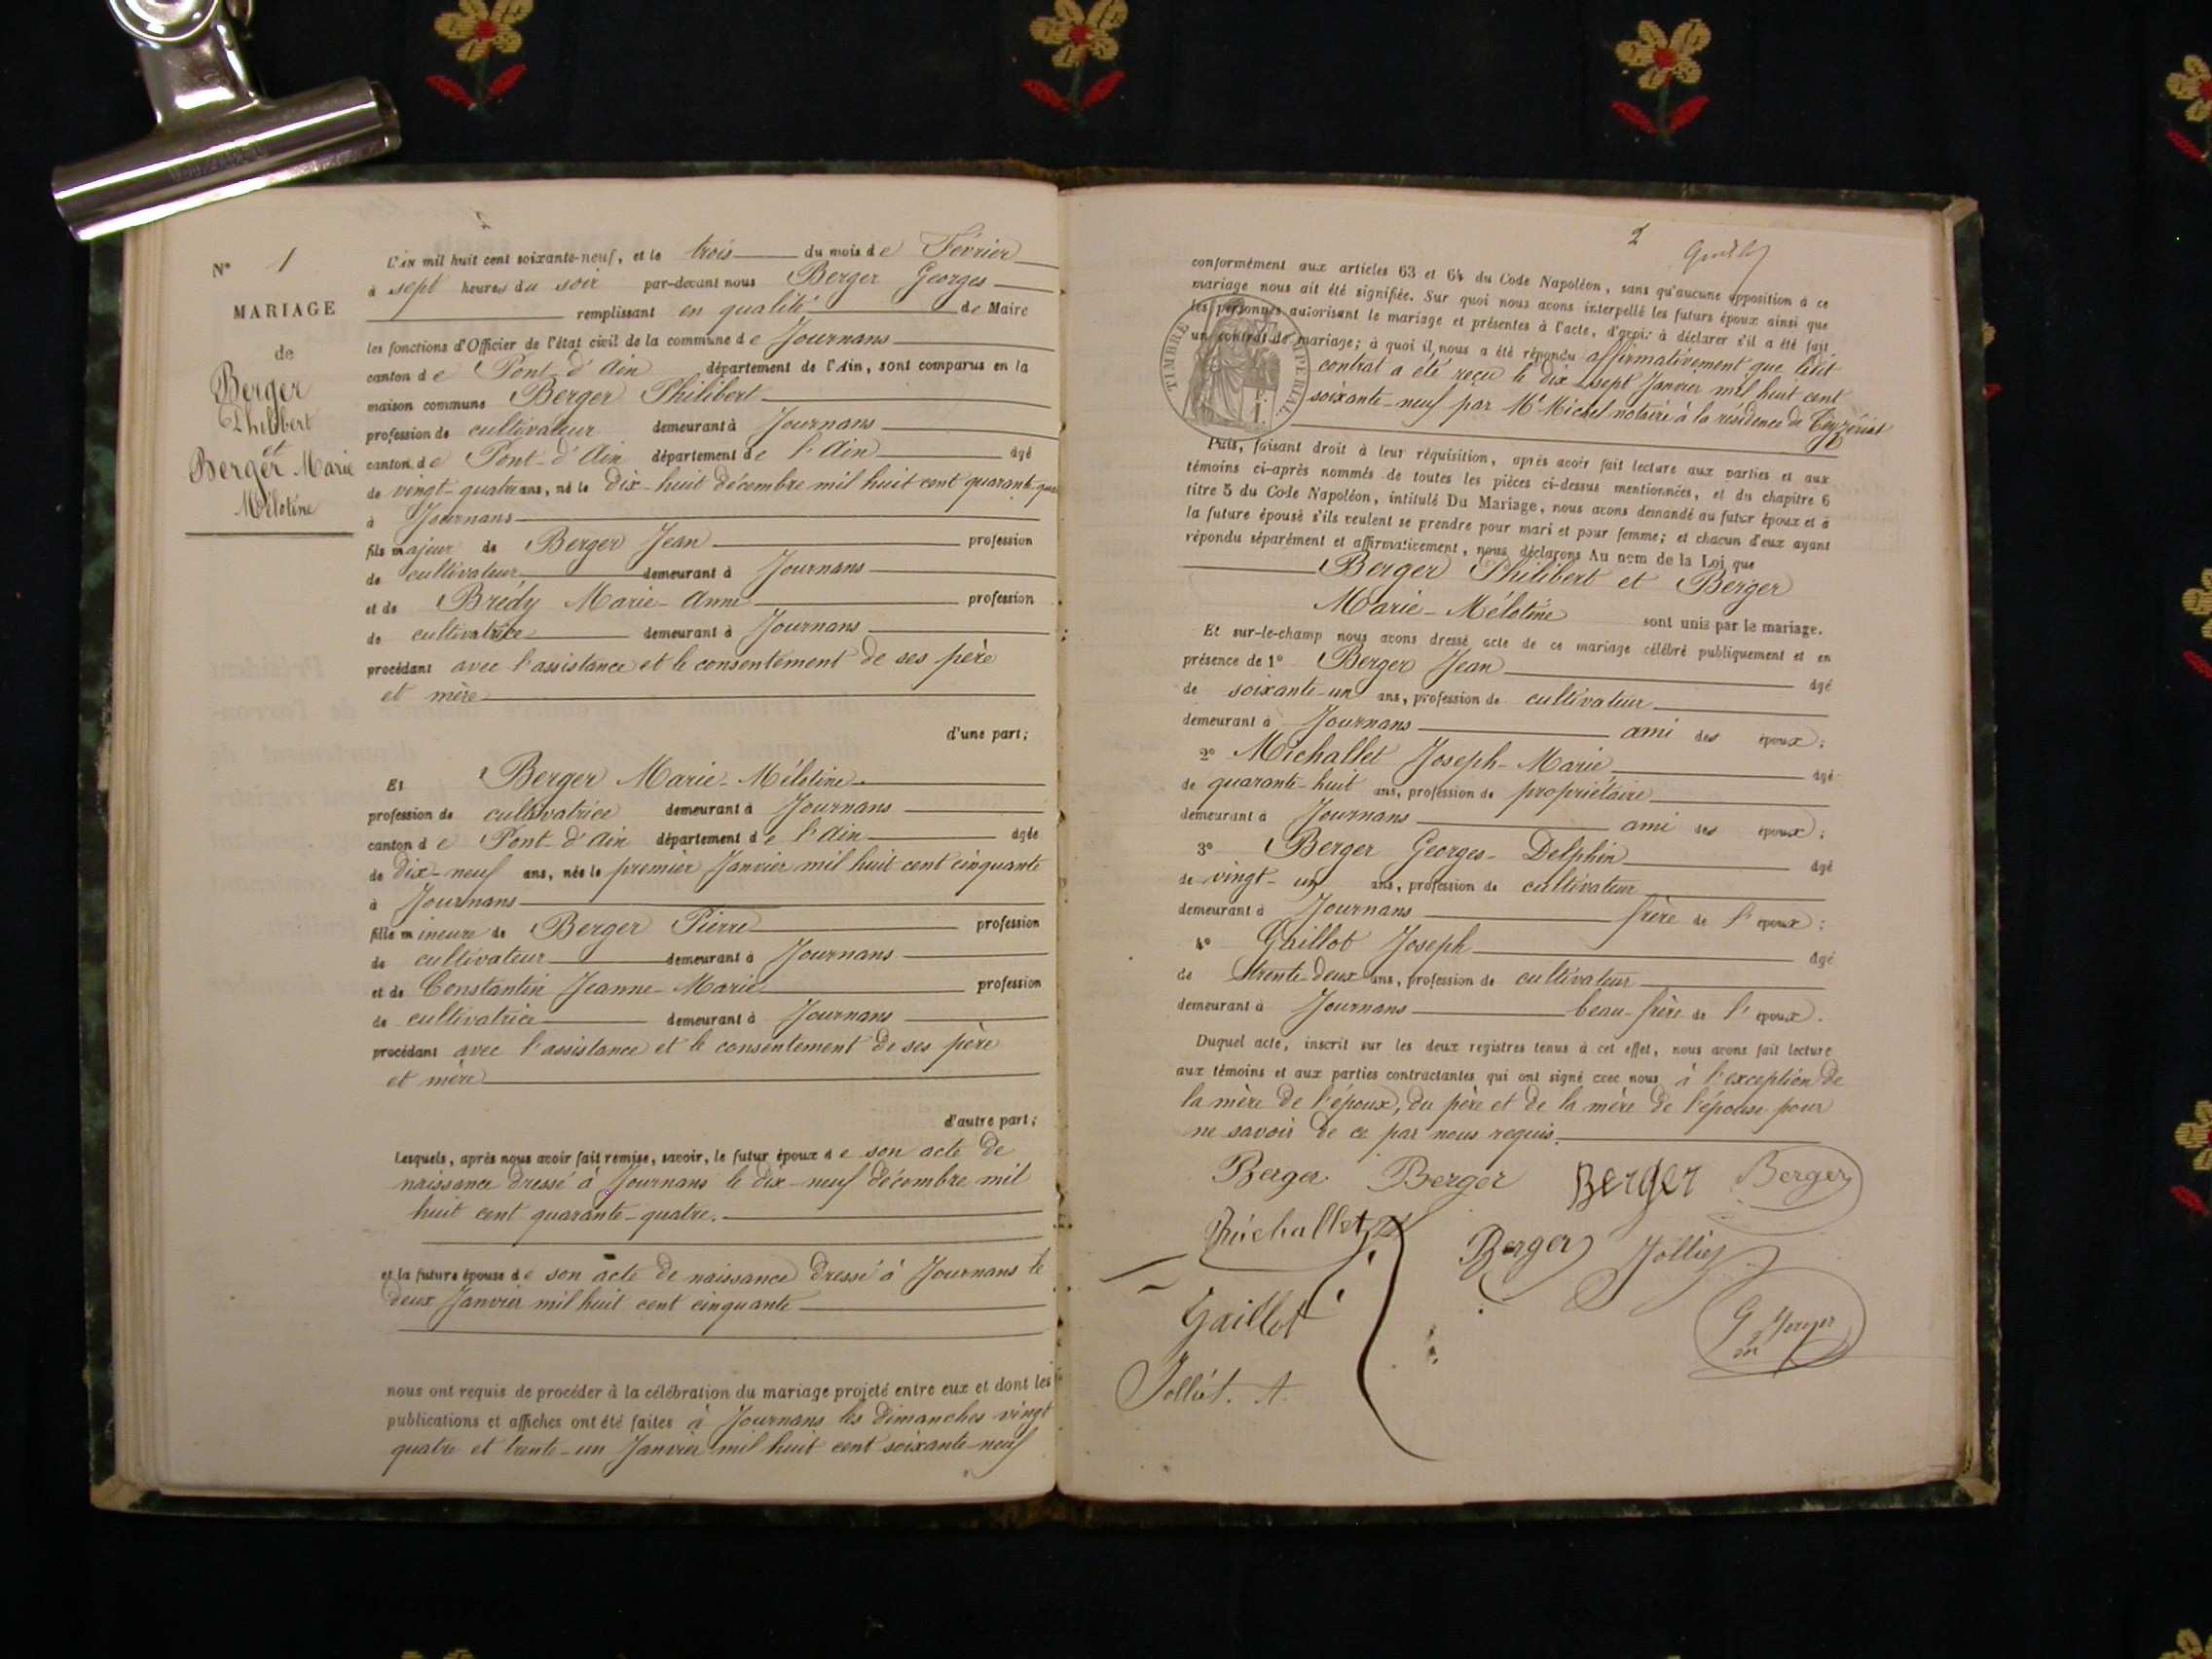 2
N° 1
MARIAGE
de
Berger
Philibert
et
Berger Marie
Mélotine
L'an mil huit cent soixante-neuf, et le trois du mois de Février
à sept heures du soir par-devant nous Berger Georges
remplissant en qualité de Maire
les fonctions d'Officier de l'état civil de la commune de Journans
canton de Pont-d'Ain département de l'Ain, sont comparus en la
maison commune Berger Philibert
profession de cultivateur demeurant à Journans
canton de Pont-d'Ain département de l'Ain âgé
de vingt-quatre ans, né le dix-huit décembre mil huit cent quarante-qua
à Journans
fils majeur de Berger Jean profession
de cultivateur demeurant à Journans
et de Brédy Marie-Anne profession
de cultivatrice demeurant à Journans
procédant avec l'assistance et le consentement de ses père
et mère
d'une part;
Et Berger Marie-Mélotine
profession de cultivatrice demeurant à Journans
canton de Pont-d'Ain département de l'Ain âgée
de dix-neuf ans, née le premier Janvier mil huit cent cinquante
à Journans
fille mineure de Berger Pierre profession
de cultivateur demeurant à Journans
et de Constantin Jeanne-Marie profession
de cultivatrice demeurant à Journans
procédant avec l'assistance et le consentement de ses père
et mère
d'autre part;
Lesquels, après nous avoir fait remise, savoir, le futur époux de son acte de
naissance dressé à Journans le dix-neuf décembre mil
huit cent quarante-quatre.
et la future épouse de son acte de naissance dressé à Journans le
deux Janvier mil huit cent cinquante
nous ont requis de procéder à la célébration du mariage projeté entre eux et dont les
publications et affiches ont été faites à Journans les dimanches vingt
quatre et trente-un Janvier mil huit cent soixante-neuf
2
conformément aux articles 63 et 64 du Code Napoléon, sans qu'aucune opposition à ce
mariage nous ait été signifiée. Sur quoi nous avons interpellé les futurs époux ainsi que
les personnes autorisant le mariage et présentes à l'acte, d'avoir à déclarer s'il a été fait
un contrat de mariage; à quoi il nous a été répondu affirmativement que ledit
contrat a été reçu le dix-sept Janvier mil huit cent
soixante-neuf par Me Michel notaire à la résidence de Ceyzériat
TIMBRE IMPERIAL
Puis, faisant droit à leur réquisition, après avoir fait lecture aux parties et aux
témoins ci-après nommés de toutes les pièces ci-dessus mentionnées, et du chapitre 6
titre 5 du Code Napoléon, intitulé Du Mariage, nous avons demandé au futur époux et à
la future épouse s'ils veulent se prendre pour mari et pour femme; et chacun d'eux ayant
répondu séparément et affirmativement, nous déclarons Au nom de la Loi que
Berger Philibert et Berger
Marie-Mélotine sont unis par le mariage.
Et sur-le-champ nous avons dressé acte de ce mariage célébré publiquement et en
présence de 1° Berger Jean âgé
de soixante-un ans, profession de cultivateur
demeurant à Journans ami des époux;
2° Michallet Joseph-Marie âgé
de quarante-huit ans, profession de propriétaire
demeurant à Journans ami des époux;
3° Berger Georges-Delphin âgé
de vingt-un ans, profession de cultivateur
demeurant à Journans frère de l'époux;
4° Gaillot Joseph âgé
de trente-deux ans, profession de cultivateur
demeurant à Journans beau-frère de l'époux.
Duquel acte, inscrit sur les deux registres tenus à cet effet, nous avons fait lecture
aux témoins et aux parties contractantes qui ont signé avec nous à l'exception de
la mère de l'époux, du père et de la mère de l'épouse pour
ne savoir de ce par nous requis.
Berger Berger Berger Berger
Michallet Berger Jolliet
Gaillot
Jolliet. A.